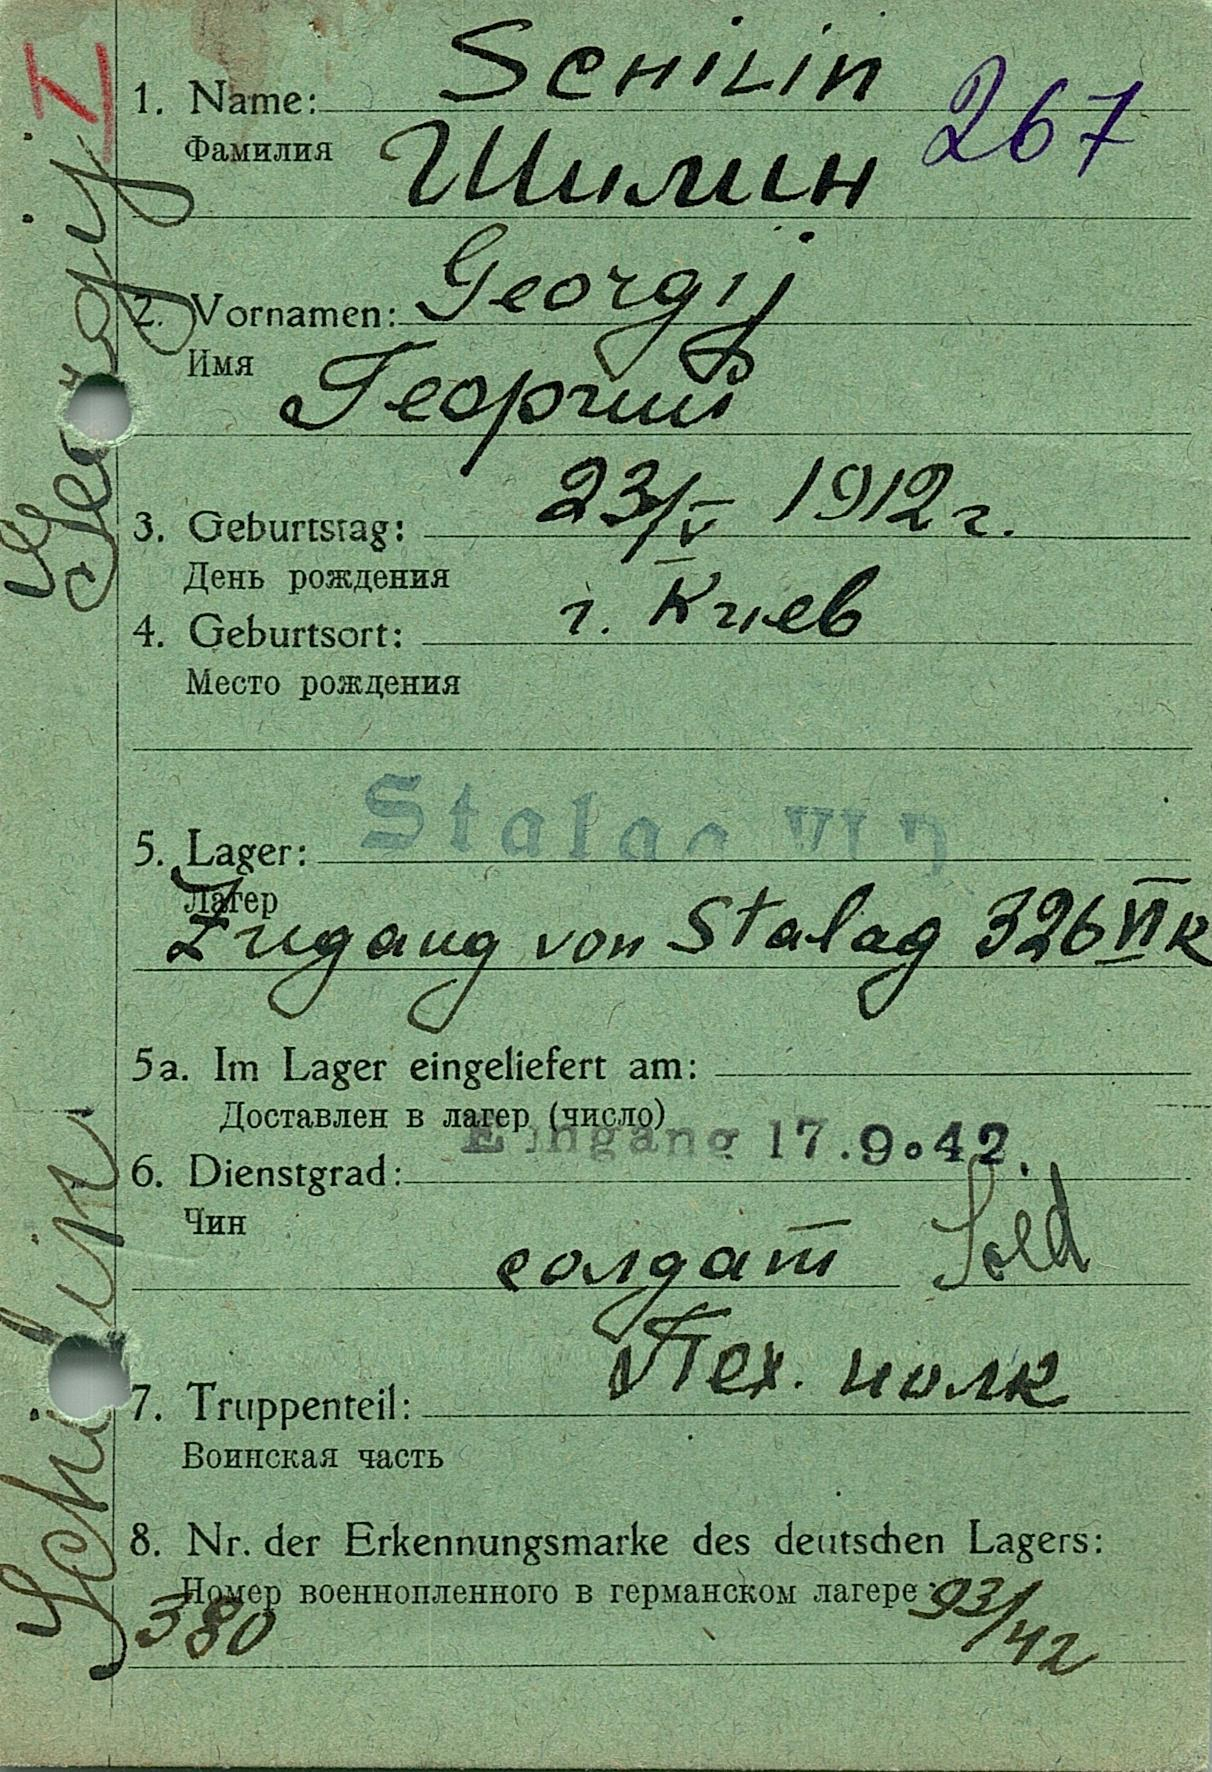 Schilin
1. Name:
267
Фамилия
Шилин
2. Vornamen: Georgij
Имя
Георгий
3. Geburtstag: 23/V 1912 г.
День рождения
4. Geburtsort: г. Киев
Место рождения
Stalag VI D
5. Lager:
Лагер
Zugang von Stalag 326 VI K
5a. Im Lager eingeliefert am:
Доставлен в лагер (число)
Eingang 17.9.42.
6. Dienstgrad:
Чин
солдат Sold
7. Truppenteil: Пех. полк
Воинская часть
8. Nr. der Erkennungsmarke des deutschen Lagers:
Номер военнопленного в германском лагере:
380 93/42
Schilin Georgij